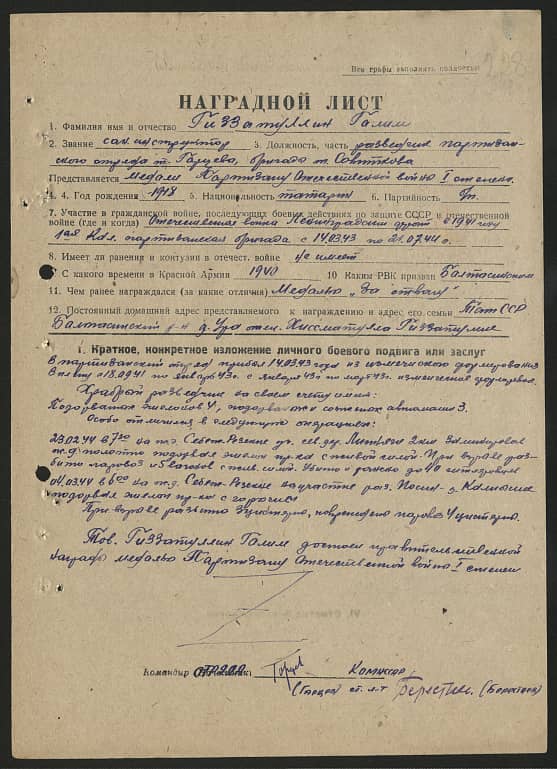 Все графы заполнять полностью
НАГРАДНОЙ ЛИСТ
1. Фамилия имя и отчество Гиззатуллин Галим
2. Звание сан.инструктор 3. Должность, часть разведчик партизан-
ского отряда т. Гарцева, бригада т.
Представляется медали Партизану Отечественной войны I степени.
4. 4. Год рождения 1918 5. Национальность татарин 6. Партийность
7. Участие в гражданской войне, последующих боевых действиях по защите СССР и отечественной
войне (где и когда) Отечественная война Ленинградский фронт с 1941 году
1ая Кал. партизанская бригада с 14.03.43 по 21.07.44 г.
8. Имеет ли ранения и контузии в отечест. войне не имеет
С какого времени в Красной Армии 1940 10 Каким РВК призван Балтасинском
11. Чем ранее награждался (за какие отличия) Медалью "За отвагу"
12. Постоянный домашний адрес представляемого к награждению и адрес его семьи Тат ССР
Балтасинский р-н д. Ура отец. Хисматулла Гиззатуллин
I. Краткое, конкретное изложение личного боевого подвига или заслуг
В партизанский отряд прибыл 14.03.43 года из изменческо формирования
В плену с 18.09.41 по январь 43 г. с января 43 г. по март 43 г. изменческое формиров.
Храбрый разведчик на своем счету имеет:
Подорванных эшелонов 4, подорвано автомашин 3.
Особо отличился в следующих операциях:
23.02.44 в 7 00 на ж.д. Себеж-Резекне 2 км заминировав
ж.д. полотно подорвал эшелон пр-ка с живой силой. При взрыве раз-
бито паровоз и 5 вагонов с жив. силой. Убито и ранено до 40 гитлеровцев
04.03.44 в 6 00 на ж.д. Себеж-Резекне на участке раз. Посинь -
подорвал эшелон пр-ка с горючим
При взрыве разбито 3 цистерны, повреждено паровоз 4 цистерны.
Тов. Гиззатуллин Галим достоин правительственной
награды медалью Партизану Отечественной войны I степени
Командир отряда Гарцев Комиссар
(Гарцев) ст. л-т